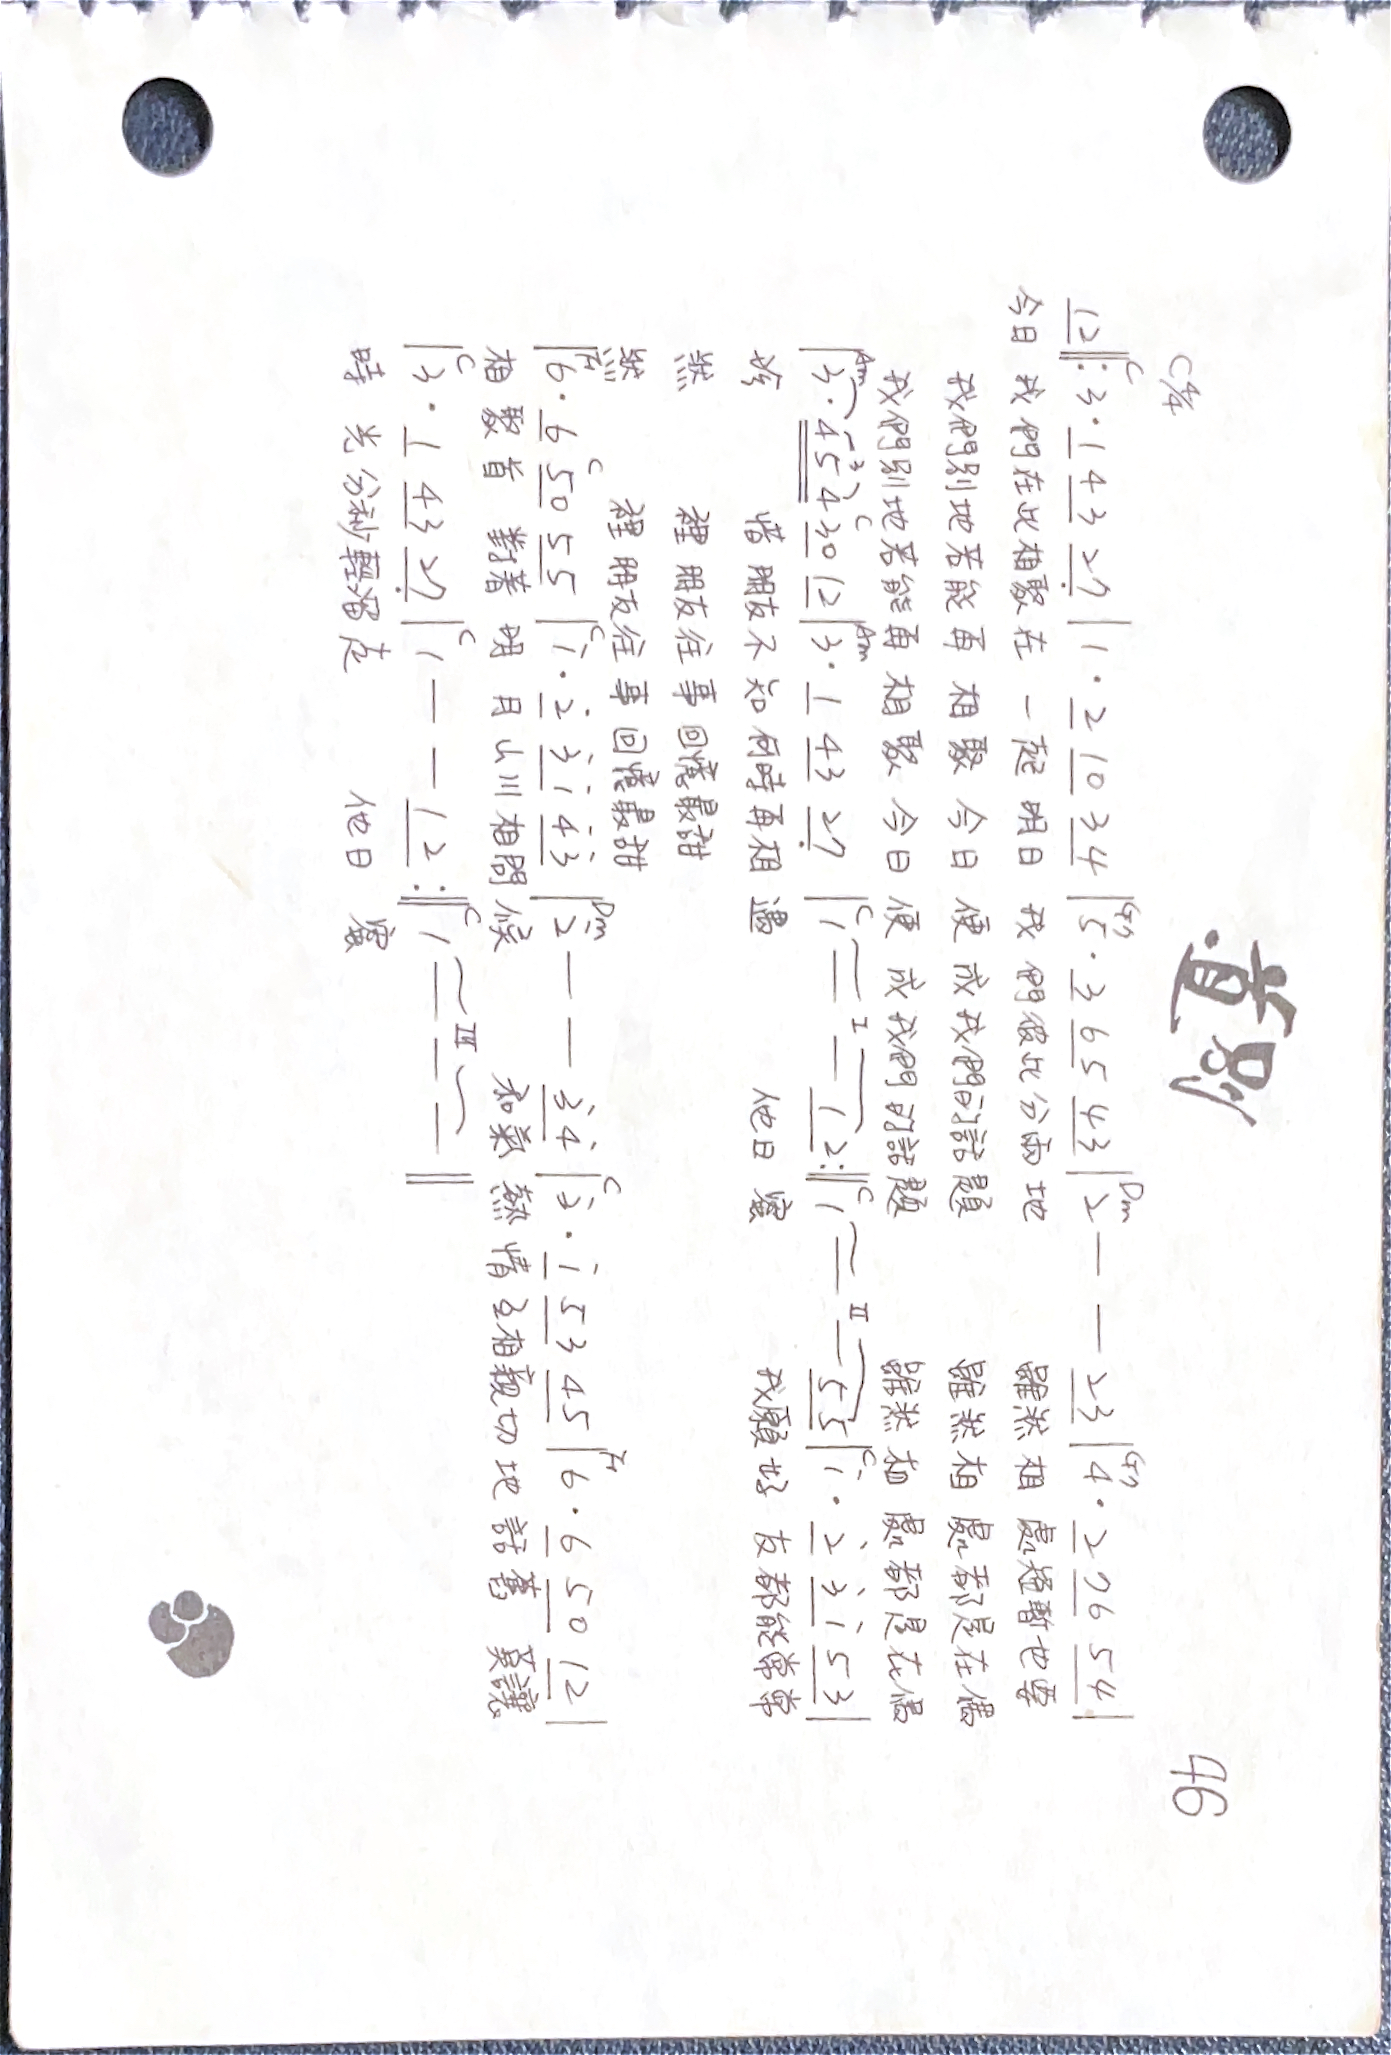 道別
46
C 4/4
C G7 Dm G7
12‖:3·1 43 27̣|1·2 10 34|5·3 65 43|2——23|4·2 76 54|
今日 我們在此相聚在 一起 明日 我們彼此分兩地 雖然相處短暫也要
我們別地若能再相聚 今日便成我們的話題 雖然相處都是在偶
我們別地若能再相聚 今日便成我們的話題 雖然相處都是在偶
Am 3 C Am C I C II C
|3·454 30 12|3·1 43 27̣|1——12:‖1——55|i·2̇ 3̇i 53|
珍 惜朋友不知何時再相遇 他日 蜜 我願好友都能常常
然 裡朋友往事回憶最甜
然 裡朋友往事回憶最甜
F C C Dm C F
|6·6 50 55|i·2̇ 3̇i 4̇3̇|2̇——3̇4̇|3̇·i 53 45|6·6 50 12|
相聚首 對著明月山川相問候 和氣熱情互相親切地話舊 莫讓
C C C III
|3·1 43 27̣|1——12:‖1———‖
時光分秒輕溜走 他日 蜜